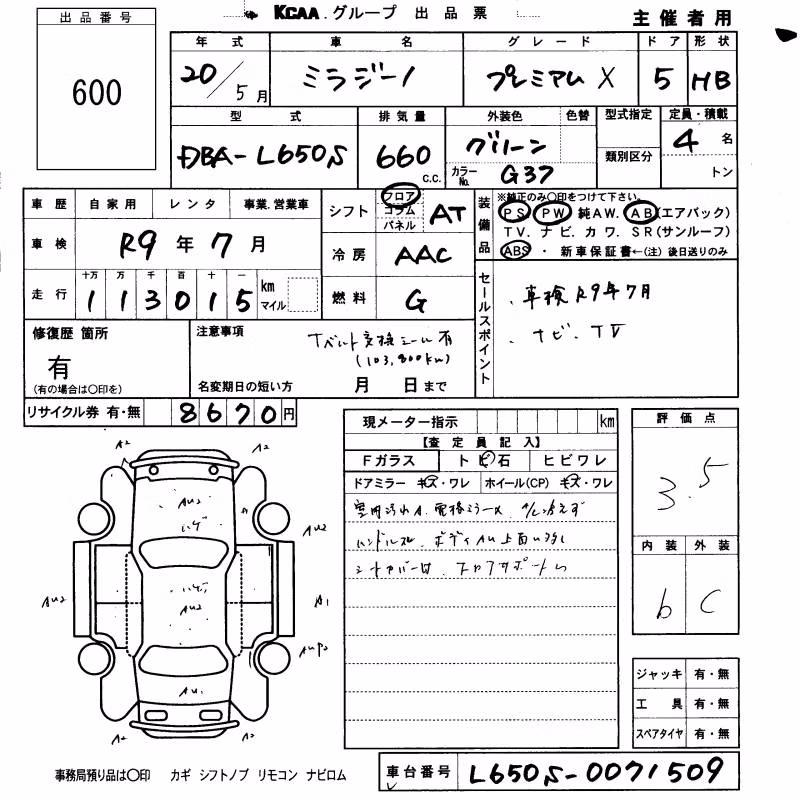 KCAA.グループ 出品票
主催者用
出品番号
600
年式 車名 グレード ドア 形状
20/5月 ミラジーノ プレミアム X 5 HB
型式 排気量 外装色 色替 型式指定 定員・積載
DBA-L650S 660 C.C. グリーン 類別区分 4名
カラーNo. G37 トン
車歴 自家用 レンタ 事業.営業車
シフト フロア コラム パネル AT
装備品
※純正のみ〇印をつけて下さい。
PS PW 純AW. AB(エアバック)
TV. ナビ. カワ. SR(サンルーフ)
ABS ・ 新車保証書←(注) 後日送りのみ
車検 R9年7月
冷房 AAC
走行 十万 万 千 百 十 一
113015 km マイル
燃料 G
セールスポイント
.車検R9年7月
.ナビ.TV
修復歴 箇所
有
(有の場合は〇印を)
注意事項
Tベルト交換シール有
(103,800km)
名変期日の短い方 月 日まで
リサイクル券 有・無 8670円
現メーター指示 km
【査定員記入】
Fガラス トビ石 ヒビワレ
ドアミラー キズ・ワレ ホイール(CP) キズ・ワレ
室内汚れA.電格ミラーX
ハンドルスレ.ボディAU上面
評価点
3.5
内装 外装
b C
A2 A2
AU2
ハゲ
AU2
ハゲ
AU2
AU2 A1
AUP2
AU1
A2 A2
ジャッキ 有・無
工具 有・無
スペアタイヤ 有・無
事務局預り品は〇印 カギ シフトノブ リモコン ナビロム
車台番号 L650S-0071509